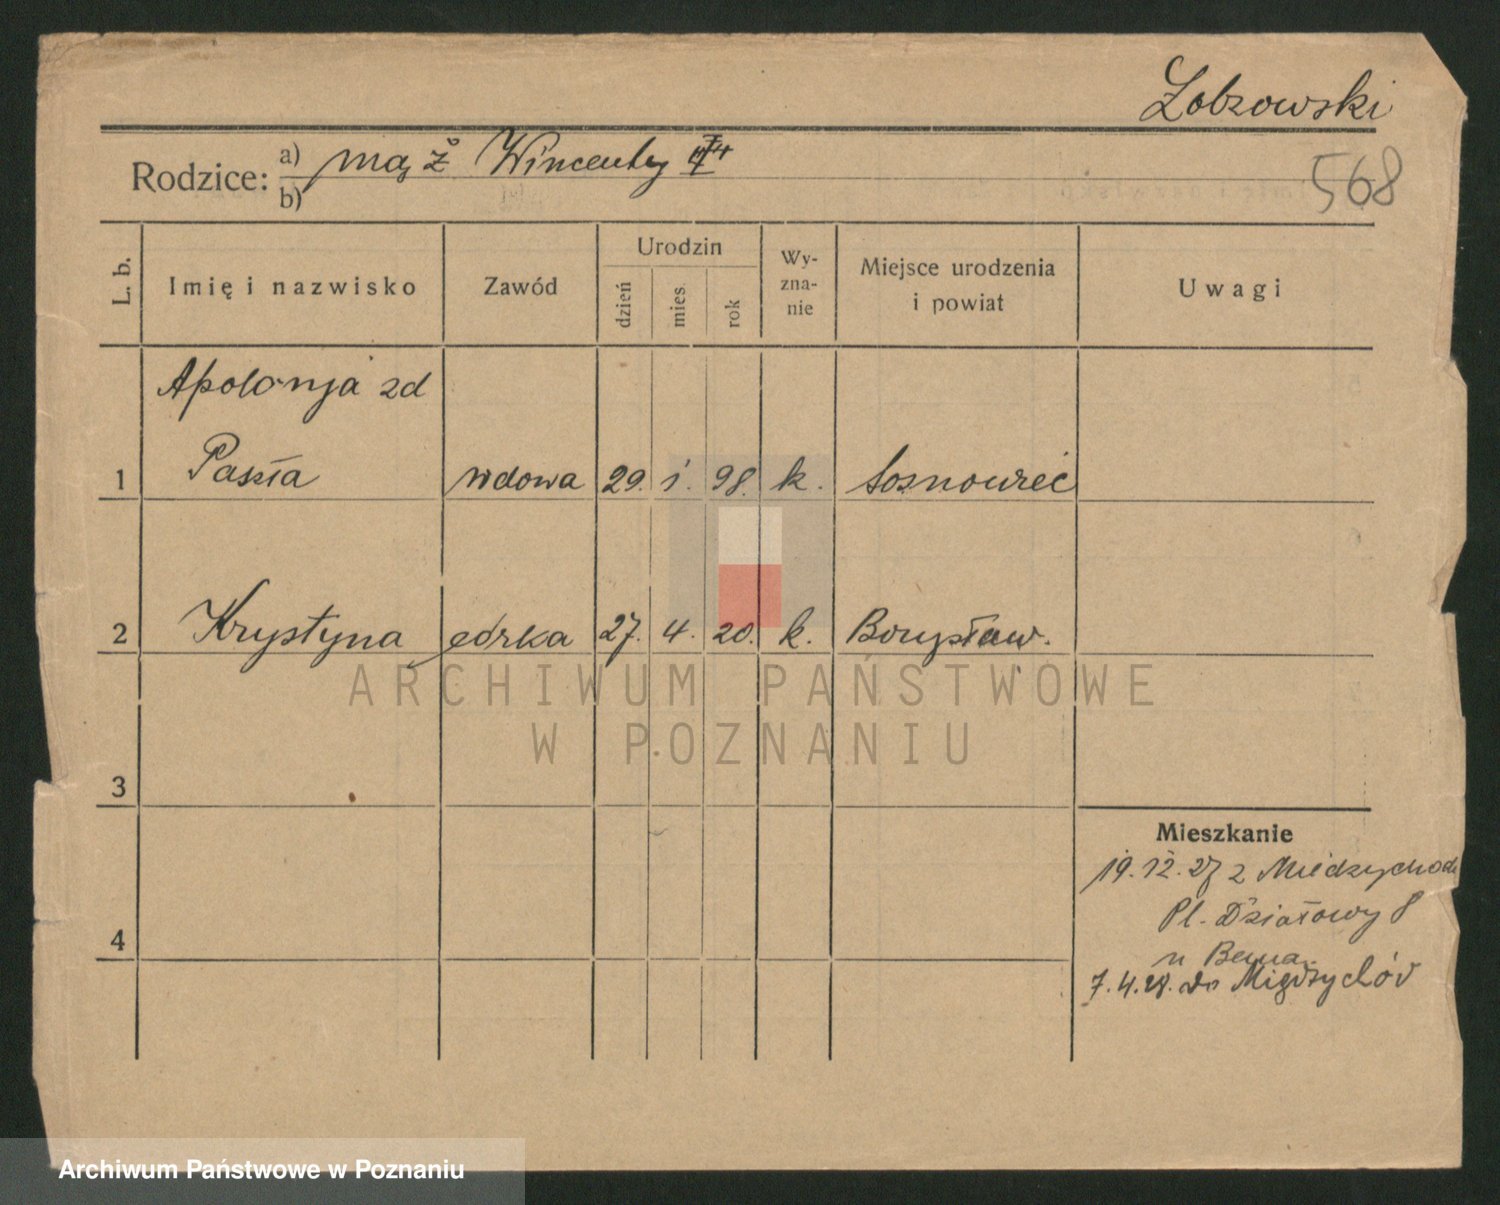 Łobzowski
Rodzice: a) mąż Wincenty
b)
568
L. b.
Imię i nazwisko
Zawód
Urodzin
dzień
mies.
rok
Wy-
zna-
nie
Miejsce urodzenia
i powiat
Uwagi
Apolonja zd
1 Paszta wdowa 29. 1. 98. k. Sosnowiec
2 Krystyna córka 27. 4. 20. k. Borysław.
3
4
Mieszkanie
19.12.27 z Miedzychodu
Pl. Działowy 8
u Bema
7.4.28. do Międzychód
ARCHIWUM PAŃSTWOWE
W POZNANIU
Archiwum Państwowe w Poznaniu